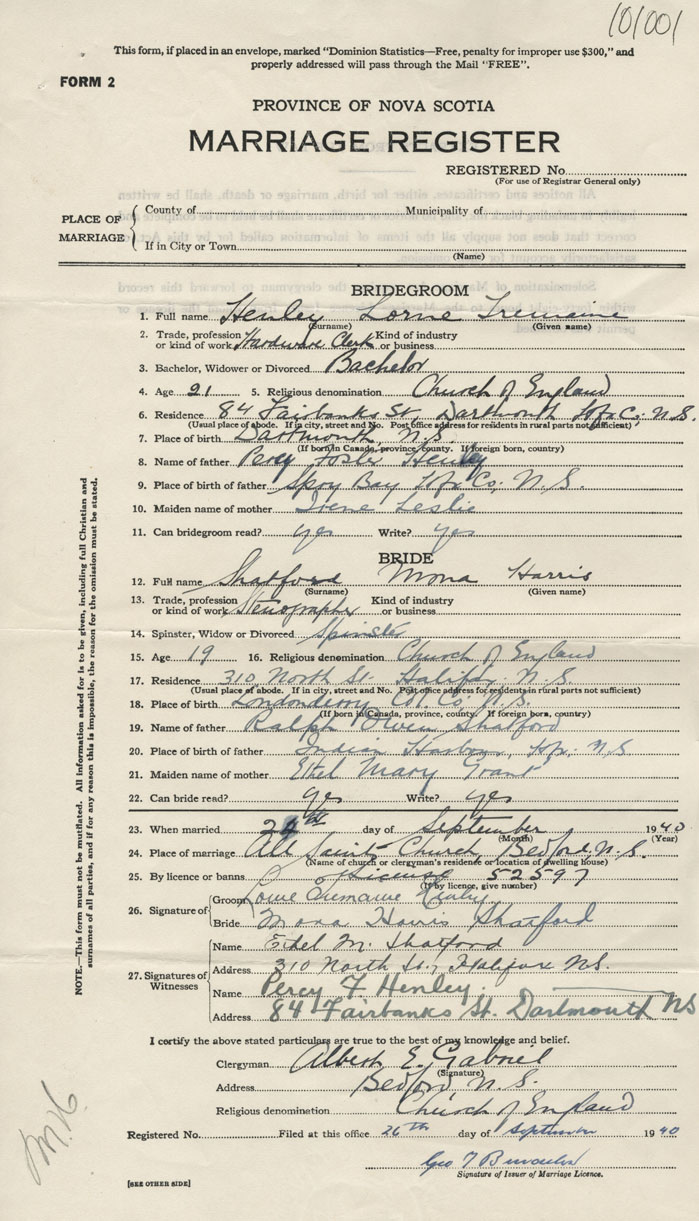 101001
This form, if placed in an envelope, marked "Dominion Statistics—Free, penalty for improper use $300," and
properly addressed will pass through the Mail "FREE".
FORM 2
PROVINCE OF NOVA SCOTIA
MARRIAGE REGISTER
REGISTERED No.
(For use of Registrar General only)
PLACE OF MARRIAGE
County of Municipality of
If in City or Town
(Name)
BRIDEGROOM
1. Full name Henley Lorne Tremaine
(Surname) (Given name)
2. Trade, profession or kind of work Hardware Clerk Kind of industry or business
3. Bachelor, Widower or Divorced Bachelor
4. Age 21 5. Religious denomination Church of England
6. Residence 84 Fairbanks St, Dartmouth Hfx Co, N.S.
(Usual place of abode. If in city, street and No. Post office address for residents in rural parts not sufficient)
7. Place of birth Dartmouth, N.S.
(If born in Canada, province, county. If foreign born, country)
8. Name of father Percy Foster Henley
9. Place of birth of father Spry Bay Hfx Co, N.S.
10. Maiden name of mother Irene Leslie
11. Can bridegroom read? yes Write? yes
BRIDE
12. Full name Shatford Mona Harris
(Surname) (Given name)
13. Trade, profession or kind of work Stenographer Kind of industry or business
14. Spinster, Widow or Divorced Spinster
15. Age 19 16. Religious denomination Church of England
17. Residence 310 North St. Halifax N.S.
(Usual place of abode. If in city, street and No. Post office address for residents in rural parts not sufficient)
18. Place of birth Londonderry Col. Co, N.S.
(If born in Canada, province, county. If foreign born, country)
19. Name of father Ralph Owen Shatford
20. Place of birth of father Indian Harbour, Hfx. N.S
21. Maiden name of mother Ethel Mary Grant
22. Can bride read? yes Write? yes
23. When married 24th day of September 1940
(Month) (Year)
24. Place of marriage All Saints Church, Bedford, N.S.
(Name of church or clergyman's residence or location of dwelling house)
25. By licence or banns of License 52597
(If by licence, give number)
26. Signature of
Groom Lorne Tremaine Henley
Bride Mona Harris Shatford
27. Signatures of Witnesses
Name Ethel M. Shatford
Address 310 North St., Halifax N.S.
Name Percy F Henley.
Address 84 Fairbanks St. Dartmouth NS
I certify the above stated particulars are true to the best of my knowledge and belief.
Clergyman Albert E. Gabriel
(Signature)
Address Bedford N.S.
Religious denomination Church of England
Registered No. Filed at this office 26th day of September 1940
Geo T
Signature of Issuer of Marriage Licence.
[SEE OTHER SIDE]
NOTE.—This form must not be mutilated. All information asked for is to be given, including full Christian and
surnames of all parties, and if for any reason this is impossible, the reason for the omission must be stated.